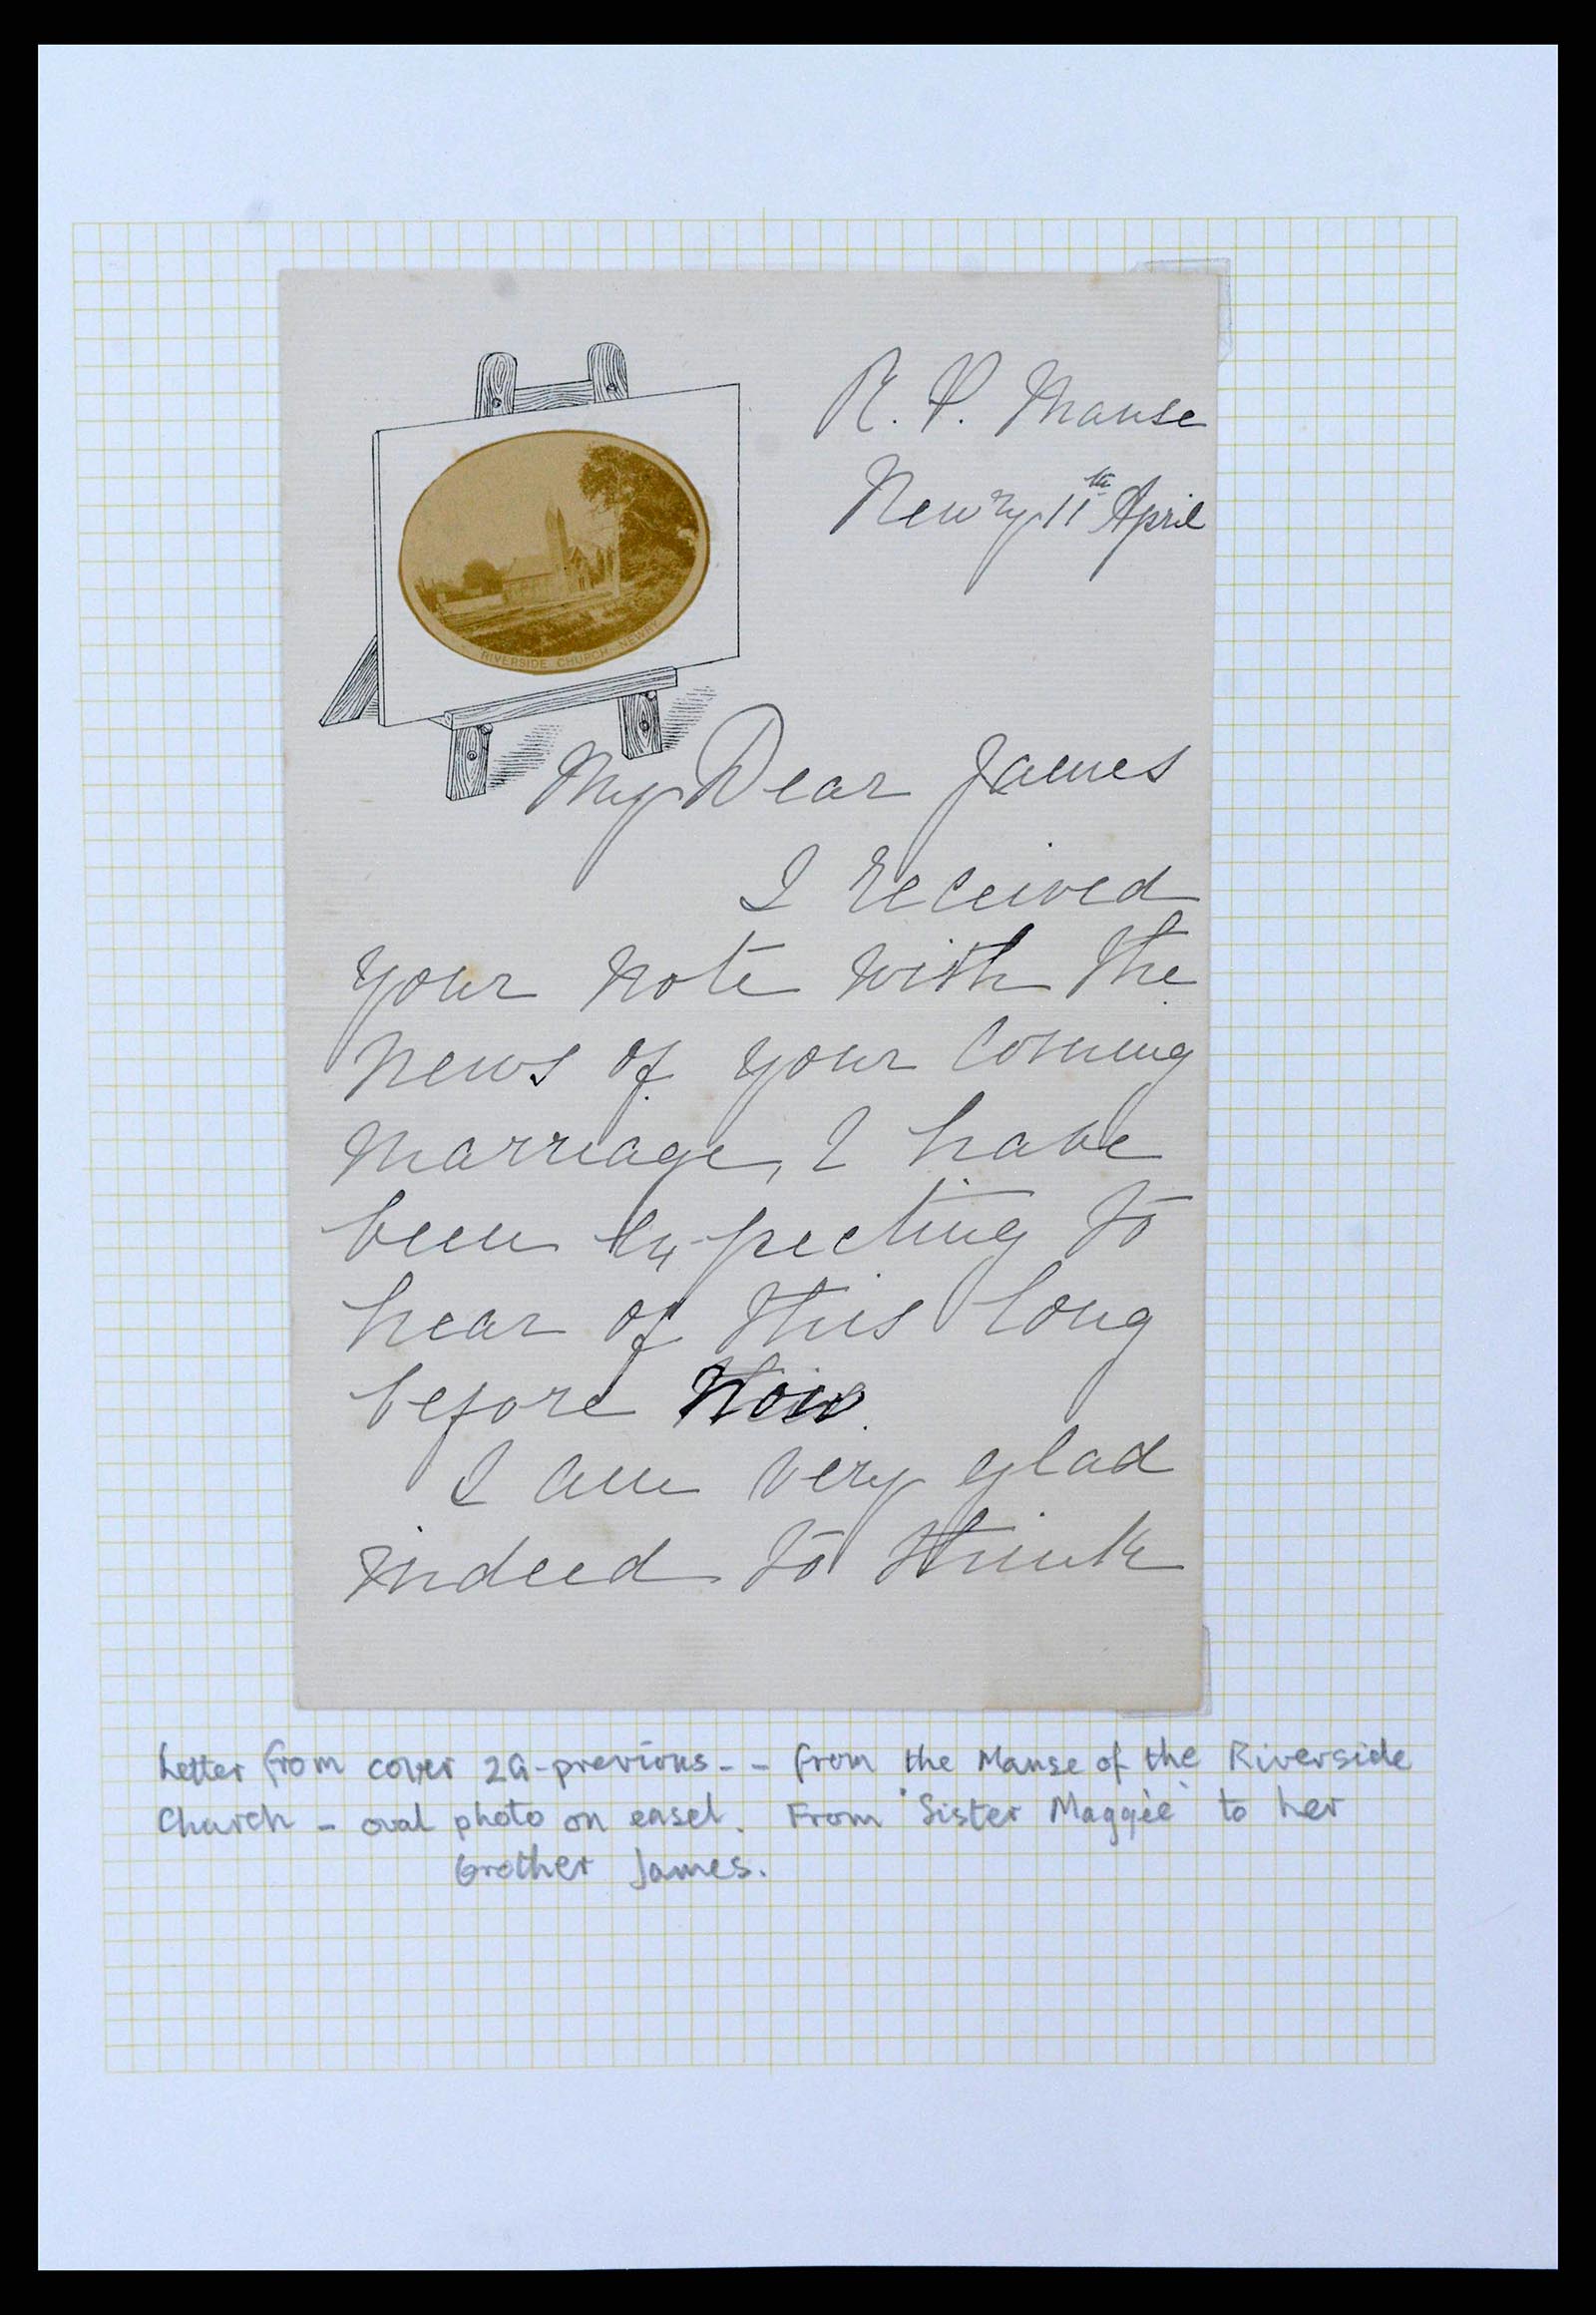 R. P. Manse
Newry 11th April
RIVERSIDE CHURCH NEWRY
My Dear James
I received
your note with the
news of your coming
marriage, I have
been expecting to
hear of this long
before now.
I am very glad
indeed to think
Letter from cover 2G-previous - - from the Manse of the Riverside
Church - oval photo on easel. From 'Sister Maggie' to her
brother James.